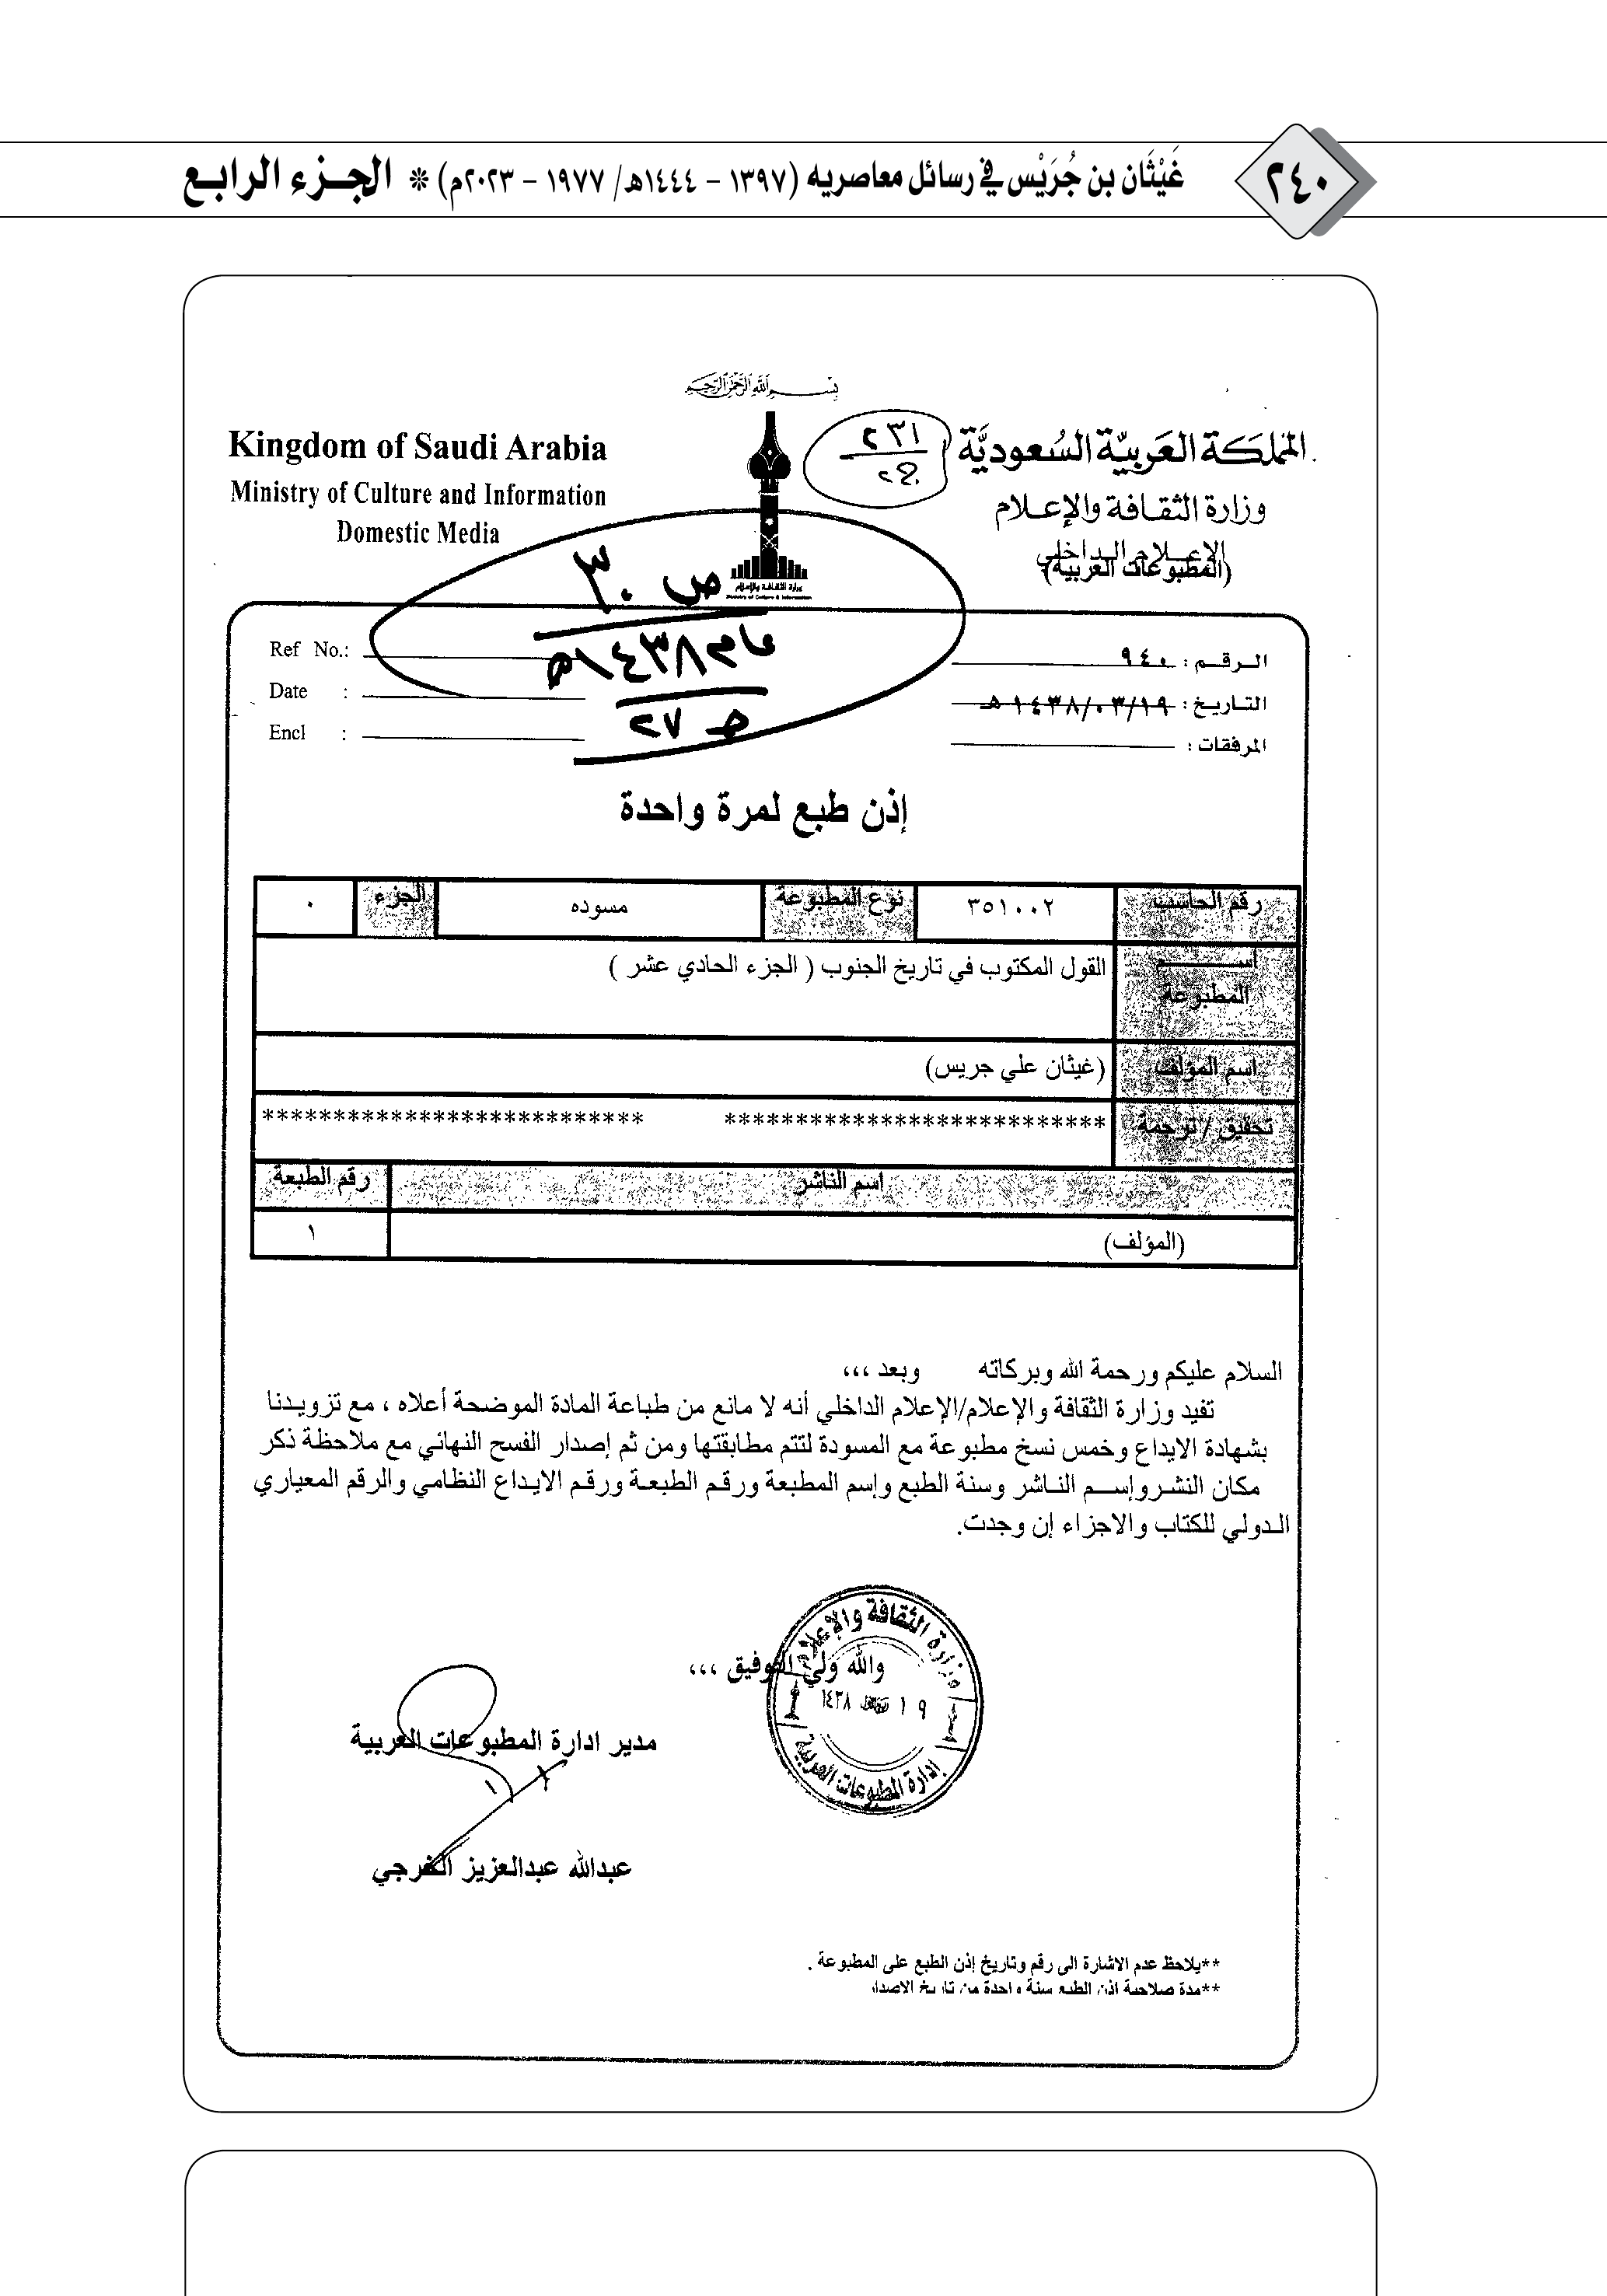 ٢٤٠
غَيْثَان بن جُرَيْس في رسائل معاصريه (١٣٩٧ - ١٤٤٤هـ/ ١٩٧٧ - ٢٠٢٣م) * الجـزء الرابـع
بسم الله الرحمن الرحيم
المملكة العربية السعودية
وزارة الثقافة والإعلام
الإعلام الداخلي
(المطبوعات العربية)
Kingdom of Saudi Arabia
Ministry of Culture and Information
Domestic Media
٢٣١
وزارة الثقافة والإعلام
Ministry of Culture & Information
ص ٣٠
عام ١٤٣٨هـ
ج ٢٧
الرقم : ٩٤٠
التاريخ : ١٤٣٨/٠٣/١٩ هـ
المرفقات :
Ref No.:
Date :
Encl :
إذن طبع لمرة واحدة
رقم الحاسب ٣٥١٠٠٢ نوع المطبوعة مسوده الجزء ٠
اسم المطبوعة القول المكتوب في تاريخ الجنوب ( الجزء الحادي عشر )
اسم المؤلف (غيثان علي جريس)
تحقيق / ترجمة *************************** ***************************
اسم الناشر رقم الطبعة
(المؤلف) ١
السلام عليكم ورحمة الله وبركاته وبعد ،،،
تفيد وزارة الثقافة والإعلام/الإعلام الداخلي أنه لا مانع من طباعة المادة الموضحة أعلاه ، مع تزويدنا
بشهادة الايداع وخمس نسخ مطبوعة مع المسودة لتتم مطابقتها ومن ثم إصدار الفسح النهائي مع ملاحظة ذكر
مكان النشر وإسم الناشر وسنة الطبع وإسم المطبعة ورقم الطبعة ورقم الايداع النظامي والرقم المعياري
الدولي للكتاب والاجزاء إن وجدت.
والله ولي التوفيق ،،،
وزارة الثقافة والإعلام
١٩ ١٤٣٨
إدارة المطبوعات العربية
مدير ادارة المطبوعات العربية
عبدالله عبدالعزيز الفرجي
**يلاحظ عدم الاشارة الى رقم وتاريخ إذن الطبع على المطبوعة .
**مدة صلاحية إذن الطبع سنة واحدة من تاريخ الاصدار